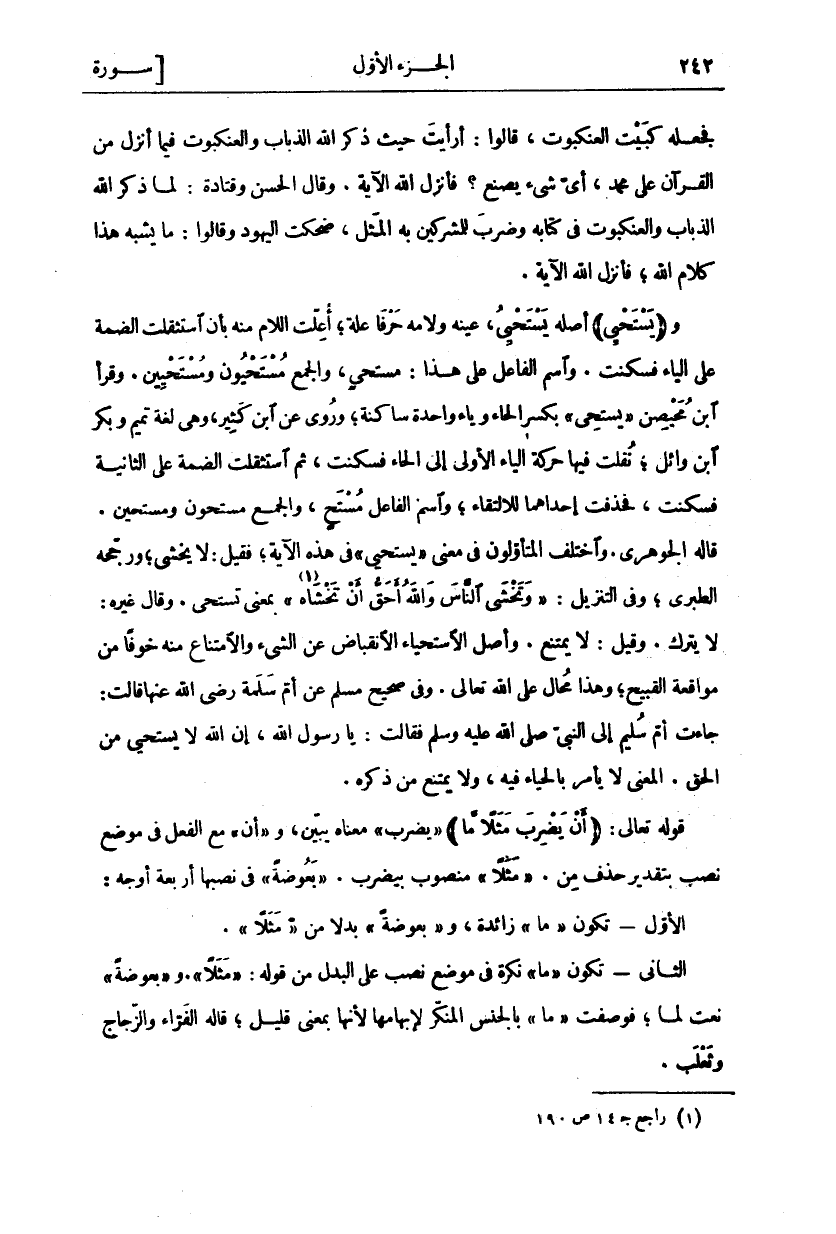 ٢٤٢ الجزء الأول [سورة
فجعله كبَيْت العنكبوت ، قالوا : أرأيتَ حيث ذكر الله الذباب والعنكبوت فيما أنزل من
القرآن على محمد ، أىّ شىء يصنع ؟ فأنزل الله الآية . وقال الحسن وقتادة : لما ذكر الله
الذباب والعنكبوت فى كتابه وضربَ للمشركين به المَثل ، ضحكت اليهود وقالوا : ما يشبه هذا
كلام الله ؛ فأنزل الله الآية .
و ﴿يَسْتَحْيِى﴾ أصله يَسْتَحْيِىُ، عينه ولامه حَرْفَا علة؛ أُعِلّت اللام منه بأن ٱستثقلت الضمة
على الياء فسكنت . وٱسم الفاعل على هذا : مستحيٍ، والجمع مُسْتَحْيُون ومُسْتَحْيِين . وقرأ
ٱبن مُحَيْصِن «يستحِى» بكسر الحاء وياء واحدة ساكنة؛ ورُوى عن ٱبن كَثِير، وهى لغة تميم وبكر
ٱبن وائل ؛ نُقلت فيها حركة الياء الأولى إلى الحاء فسكنت ، ثم ٱستثقلت الضمة على الثانية
فسكنت ، فحذفت إحداهما للالتقاء ؛ وٱسم الفاعل مُسْتَحٍ ، والجمع مستحون ومستحين .
قاله الجوهرى. وٱختلف المتأوّلون فى معنى «يستحيى» فى هذه الآية؛ فقيل: لا يخشى؛ ورجّحه
الطبرى ؛ وفى التنزيل : « وَتَخْشَى ٱلنَّاسَ وَٱللهُ أَحَقُّ أَنْ تَخْشَاهُ (١) » بمعنى تستحى . وقال غيره:
لا يترك . وقيل : لا يمتنع . وأصل الٱستحياء الٱنقباض عن الشىء والٱمتناع منه خوفًا من
مواقعة القبيح؛ وهذا محال على الله تعالى. وفى صحيح مسلم عن أمّ سَلَمة رضى الله عنها قالت:
جاءت أمّ سُليم إلى النبىّ صلى الله عليه وسلم فقالت : يا رسول الله ، إن الله لا يستحيى من
الحق . المعنى لا يأمر بالحياء فيه ، ولا يمتنع من ذكره .
قوله تعالى: ﴿أَنْ يَضْرِبَ مَثَلًا مَّا﴾ «يضرب» معناه يبيّن، و «أن» مع الفعل فى موضع
نصب بتقدير حذف مِن . «مَثَلًا» منصوب بيضرب . «بَعُوضةً» فى نصبها أربعة أوجه :
الأوّل — تكون « ما » زائدة ، و « بعوضةً » بدلا من « مَثَلًا » .
الثانى — تكون «ما» نكرة فى موضع نصب على البدل من قوله : «مَثَلًا». و «بعوضةً»
نعت لما ؛ فوصفت « ما » بالجنس المنكّر لإبهامها لأنها بمعنى قليل ؛ قاله الفَرّاء والزّجاج
وثَعْلَب .
(١) راجع جـ ١٤ ص ١٩٠